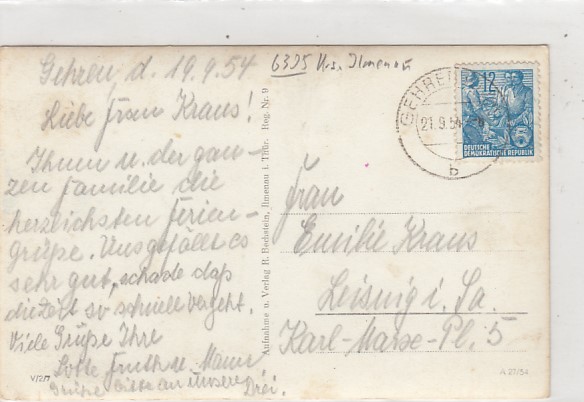 Gehren, d. 19.9.54
Liebe Frau Kraus!
Ihnen u. der gan-
zen Familie die
herzlichsten Ferien-
grüße. Uns gefällt es
sehr gut, schade daß
die Zeit so schnell vergeht.
Viele Grüße Ihre
Lotte u. Mann
Grüße bitte an unsere
Drei.
V/2/7
Aufnahme u. Verlag R. Bechstein, Ilmenau i. Thür. Reg. Nr. 9
6325 Krs. Ilmenau
GEHREN
21.9.54
b
12
5
DEUTSCHE
DEMOKRATISCHE REPUBLIK
Frau
Emilie Kraus
Leisnig i. Sa.
Karl-Marx-Pl. 5
A 27/54